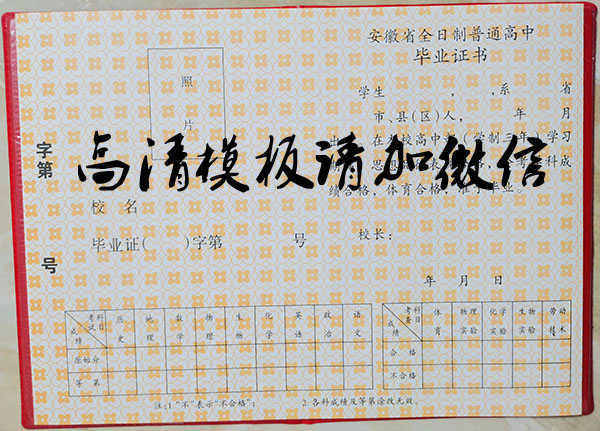 安徽省全日制普通高中
毕业证书
照
片
学生 , ,系 省
市、县(区)人, 年 月
出 在 校高中 (学制三年)学习
思 科成
绩合格,体育合格,准予毕业。
高清模板请加微信
字第
号
校 名
毕业证( )字第 号
校长:
年 月 日
考试科目 历史 地理 数学 物理 生物 化学 英语 政治 语文
成绩
原始分
等 第
考查科目 体育 物理实验 化学实验 生物实验 劳动技术
成绩
合 格
不合格
注:1."不"表示"不合格"; 2.各科成绩及等第涂改无效。